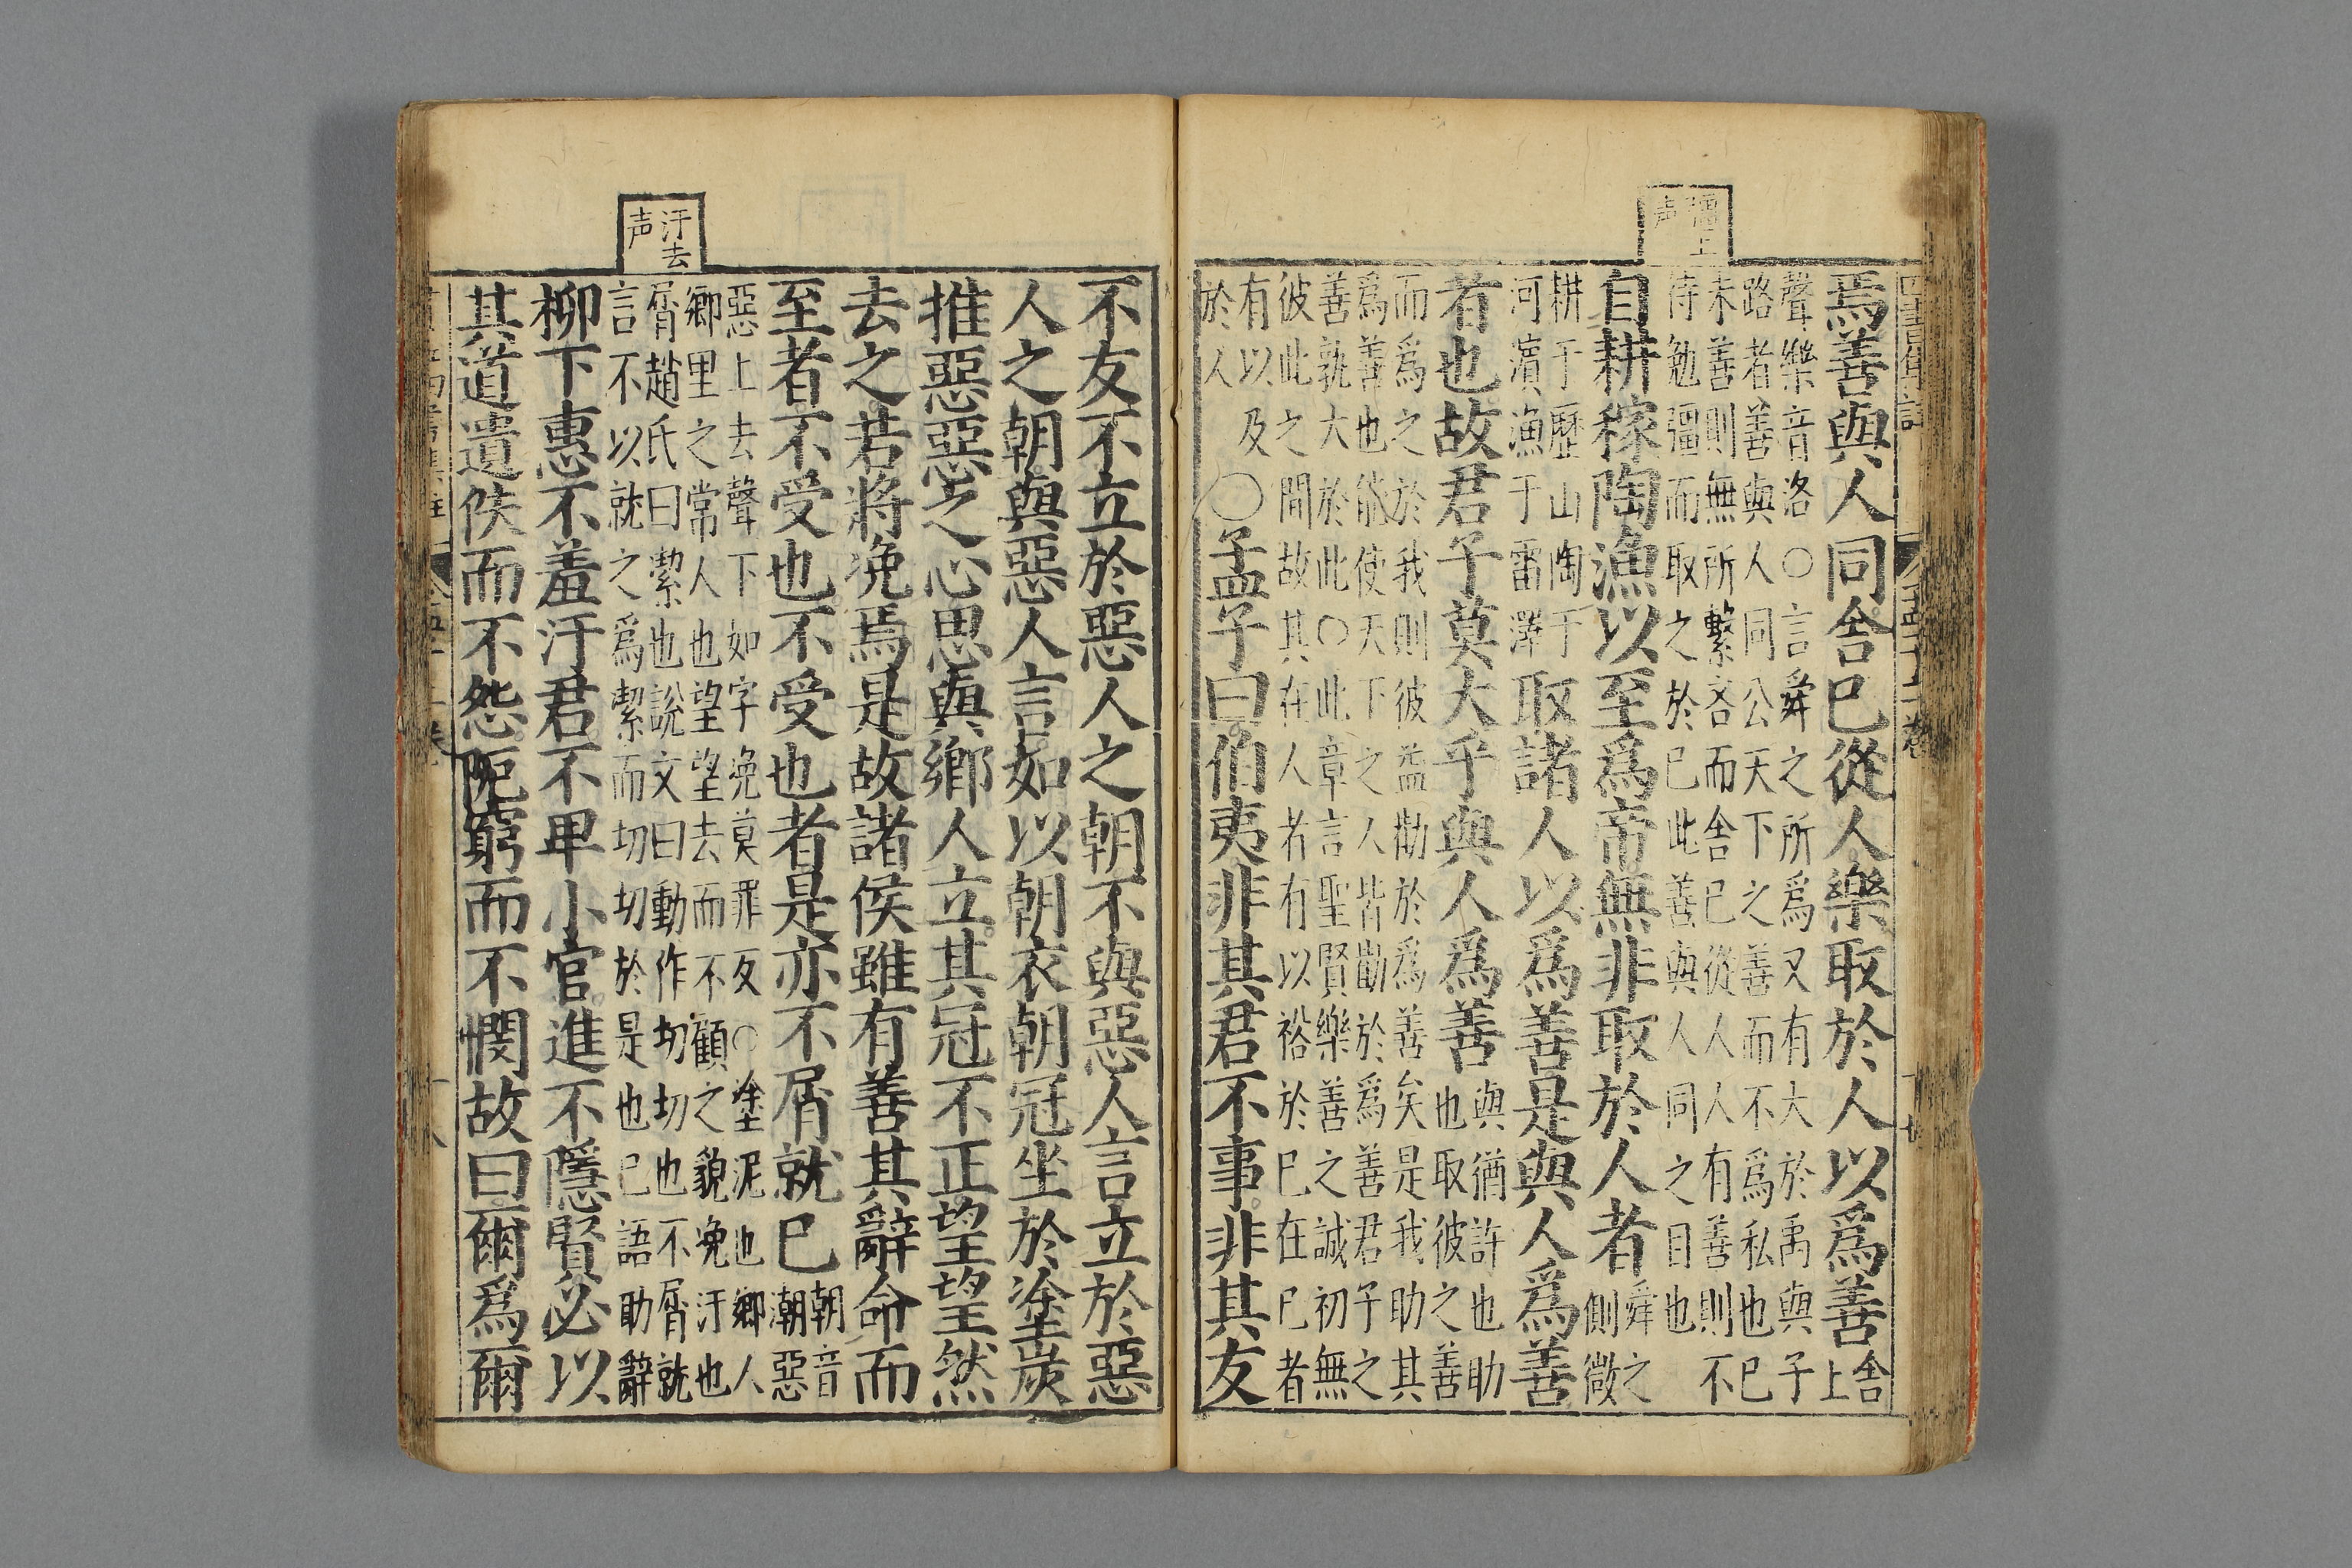 彊上
声
焉善與人同舍已從人樂取於人以爲善舍上
聲樂音洛○言舜之所爲又有大於禹與子
路者善與人同公天下之善而不爲私也已
未善則無所繫吝而舍已從人人有善則不
待勉彊而取之於已此善與人同之目也
自耕稼陶漁以至爲帝無非取於人者舜之
側微
耕于歷山陶于
河濱漁于雷澤
取諸人以爲善是與人爲善
者也故君子莫大乎與人爲善與猶許也助
也取彼之善
而爲之於我則彼益勸於爲善矣是我助其
爲善也能使天下之人皆勸於爲善君子之
善孰大於此○此章言聖賢樂善之誠初無
彼此之間故其在人者有以裕於已在已者
有以及
於人
○孟子曰伯夷非其君不事非其友
汙去
声
不友不立於惡人之朝不與惡人言立於惡
人之朝與惡人言如以朝衣朝冠坐於塗炭
推惡惡之心思與鄉人立其冠不正望望然
去之若將浼焉是故諸侯雖有善其辭命而
至者不受也不受也者是亦不屑就已朝音
潮惡
惡上去聲下如字浼莫罪反○塗泥也鄉人
鄉里之常人也望望去而不顧之貌浼汙也
屑趙氏曰潔也說文曰動作切切也不屑就
言不以就之爲潔而切切於是也已語助辭
柳下惠不羞汙君不卑小官進不隱賢必以
其道遺佚而不怨阨窮而不憫故曰爾爲爾